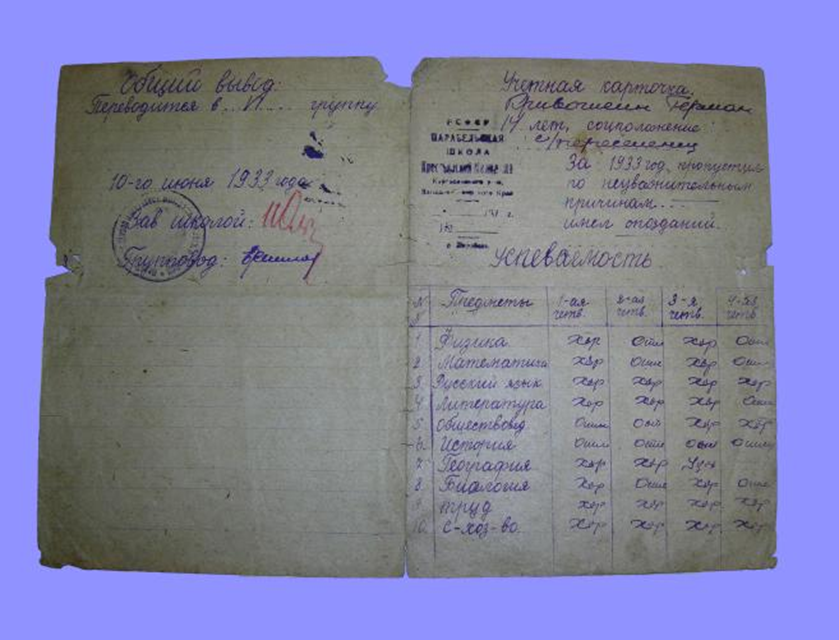 Общий вывод:
Переводится в .. VI .... группу
10-го июня 1933 года
Зав школой:
Групповод:
Учетная карточка.
Кривошеин Герман
14 лет, соцположение
с/переселенец
РСФСР
ПАРАБЕЛЬСКАЯ
ШКОЛА
За 1933 год, пропустил
по неуважительным
причинам....
имел опозданий.
Успеваемость
№ Предметы 1-ая четв. 2-ая четв. 3-я четв. 4-ая четв.
1 Физика Хор Отл Хор Отл
2 Математика Хор Отл Хор Отл
3 Русский язык Хор Хор Хор Хор
4 Литература Хор Хор Хор Отл
5 Обществовед. Отл Отл Хор Хор
6 История Отл Отл Отл Отл
7 География Хор Хор Удч
8 Биология Хор Отл Хор Отл
9 труд Хор Хор Хор Хор
10 с-хоз-во. Хор Хор Хор Хор